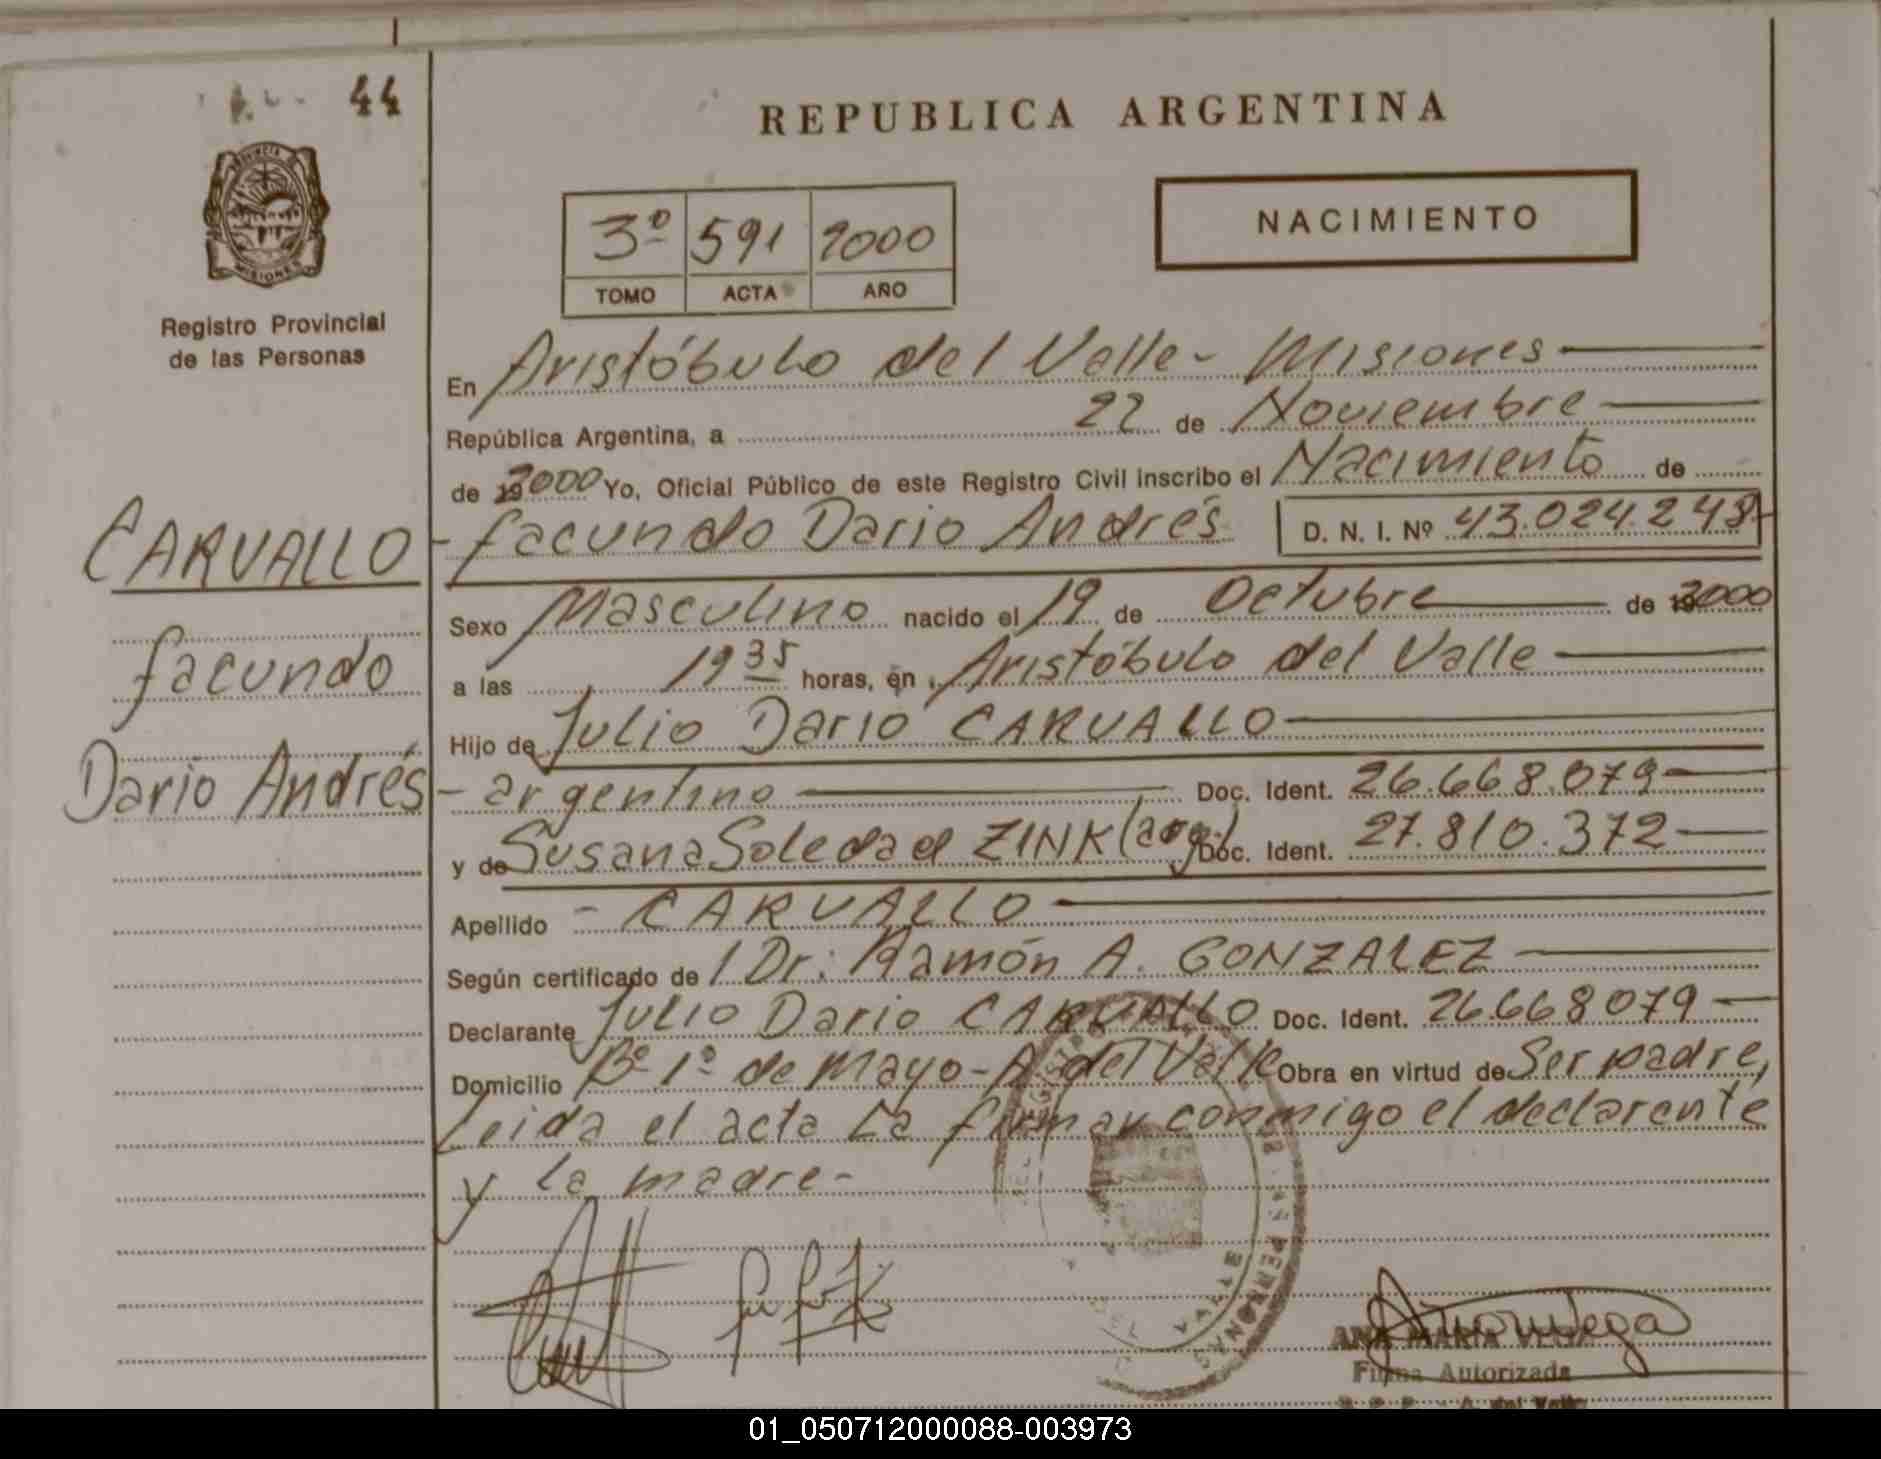 44
REPUBLICA ARGENTINA
PROVINCIA DE
MISIONES
Registro Provincial
de las Personas
3º 591 2000
TOMO ACTA AÑO
NACIMIENTO
En Aristóbulo del Valle - Misiones
República Argentina, a 22 de Noviembre
de 2000 Yo, Oficial Público de este Registro Civil inscribo el Nacimiento de
CARVALLO - facundo Dario Andrés D. N. I. Nº 43.024.248-
facundo
Dario Andrés
Sexo Masculino nacido el 19 de Octubre de 2000
a las 19 35 horas, en Aristóbulo del Valle
Hijo de Julio Dario CARVALLO
- argentino Doc. Ident. 26.668.079
y de Susana Soledad ZINK (arg.) Doc. Ident. 27.810.372
Apellido - CARVALLO
Según certificado de Dr. Ramón A. GONZALEZ
Declarante Julio Dario CARVALLO Doc. Ident. 26.668.079
Domicilio Bº 1º de Mayo - A. del Valle Obra en virtud de Ser padre,
Leida el acta La firman conmigo el declarante
y la madre -
ANA MARIA VEGA
Firma Autorizada
A. del Valle
01_050712000088-003973